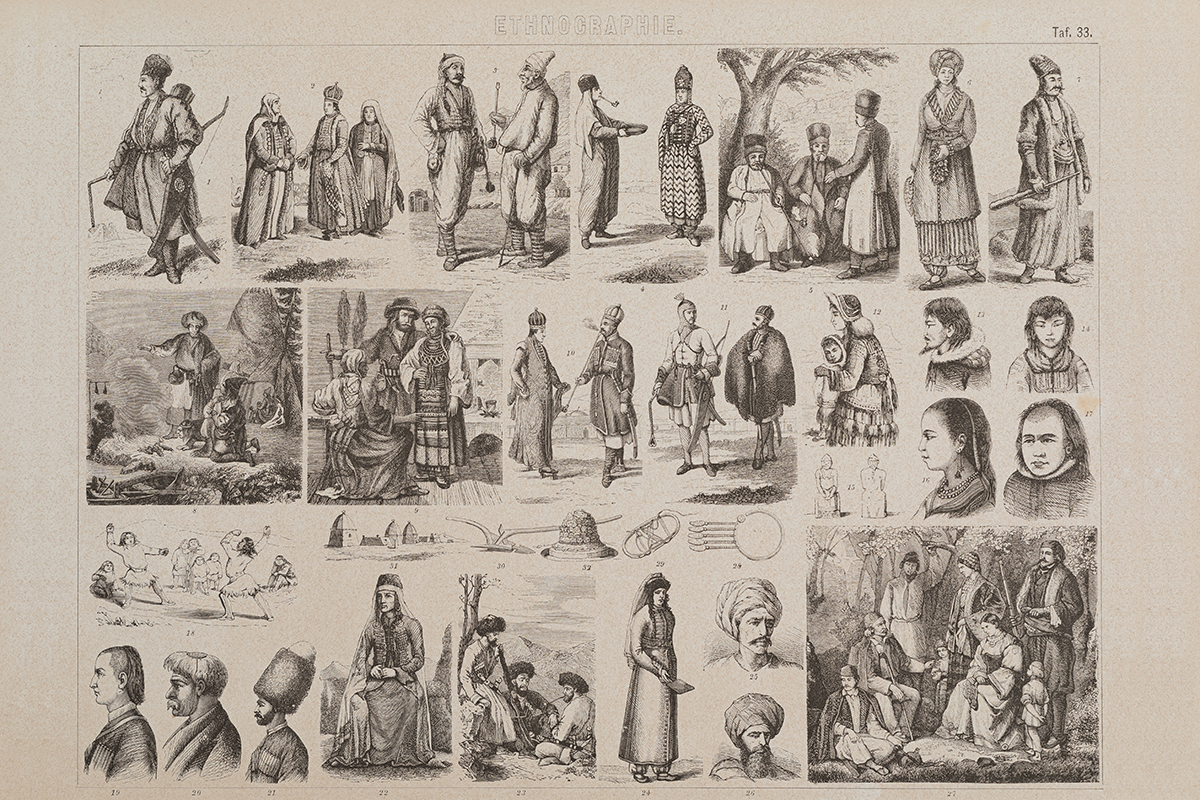 ETHNOGRAPHIE.
Taf. 33.
1
2
3
6
7
4
5
10
11
12
13
14
17
15
16
8
9
31
30
32
29
28
18
25
19
20
21
22
23
24
26
27